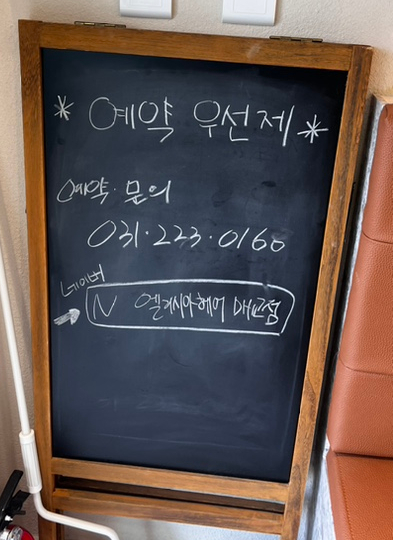 * 예약 우선제 *
예약·문의
031·223·0160
네이버
N 엘거시아헤어 매교점